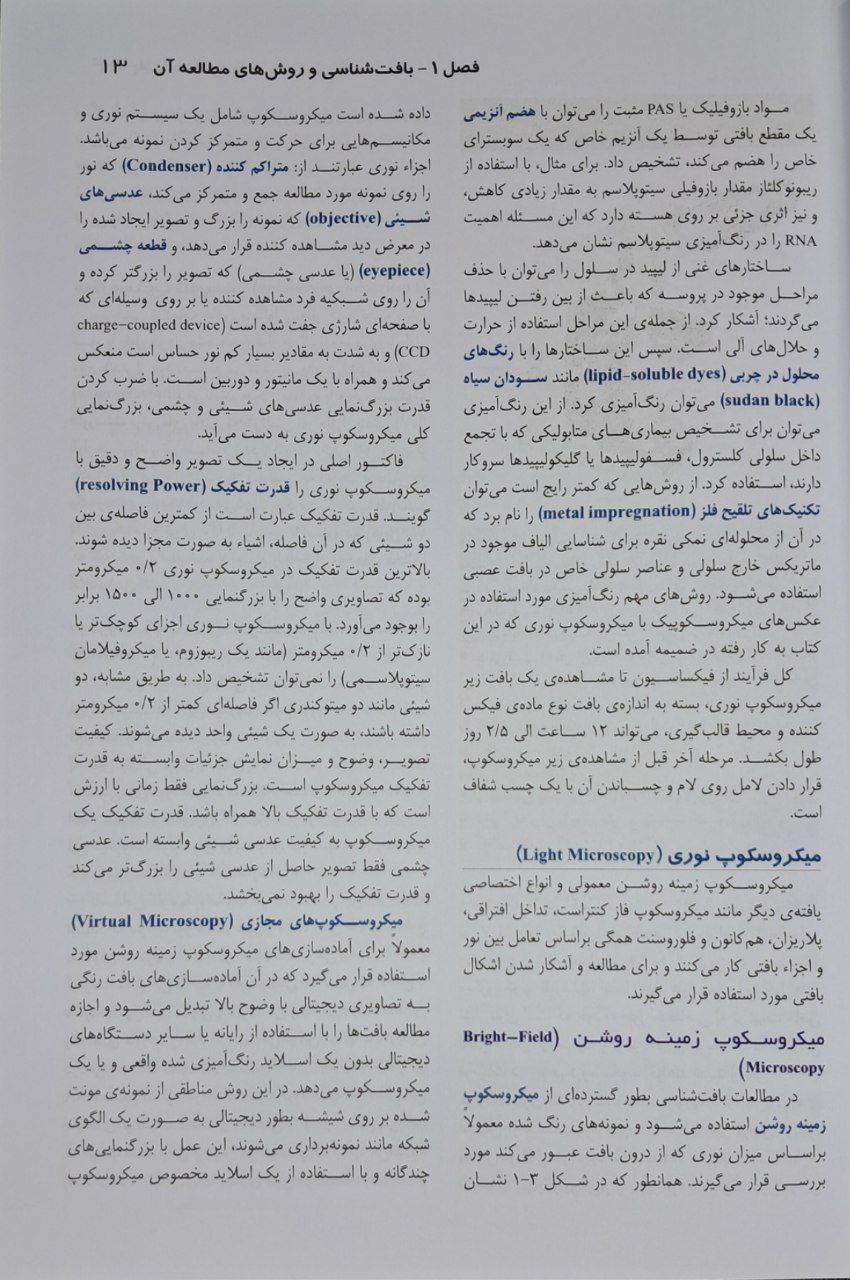 فصل ۱ - بافت‌شناسی و روش‌های مطالعه آن ۱۳
مواد بازوفیلیک یا PAS مثبت را می‌توان با هضم آنزیمی
یک مقطع بافتی توسط یک آنزیم خاص که یک سوبسترای
خاص را هضم می‌کند، تشخیص داد. برای مثال، با استفاده از
ریبونوکلئاز مقدار بازوفیلی سیتوپلاسم به مقدار زیادی کاهش،
و نیز اثری جزئی بر روی هسته دارد که این مسئله اهمیت
RNA را در رنگ‌آمیزی سیتوپلاسم نشان می‌دهد.
ساختارهای غنی از لیپید در سلول را می‌توان با حذف
مراحل موجود در پروسه که باعث از بین رفتن لیپیدها
می‌گردند؛ آشکار کرد. از جمله‌ی این مراحل استفاده از حرارت
و حلال‌های آلی است. سپس این ساختارها را با رنگ‌های
محلول در چربی (lipid-soluble dyes) مانند سودان سیاه
(sudan black) می‌توان رنگ‌آمیزی کرد. از این رنگ‌آمیزی
می‌توان برای تشخیص بیماری‌های متابولیکی که با تجمع
داخل سلولی کلسترول، فسفولیپیدها یا گلیکولیپیدها سروکار
دارند، استفاده کرد. از روش‌هایی که کمتر رایج است می‌توان
تکنیک‌های تلقیح فلز (metal impregnation) را نام برد که
در آن از محلوله‌ای نمکی نقره برای شناسایی الیاف موجود در
ماتریکس خارج سلولی و عناصر سلولی خاص در بافت عصبی
استفاده می‌شود. روش‌های مهم رنگ‌آمیزی مورد استفاده در
عکس‌های میکروسکوپیک با میکروسکوپ نوری که در این
کتاب به کار رفته در ضمیمه آمده است.
کل فرآیند از فیکساسیون تا مشاهده‌ی یک بافت زیر
میکروسکوپ نوری، بسته به اندازه‌ی بافت نوع ماده‌ی فیکس
کننده و محیط قالب‌گیری، می‌تواند ۱۲ ساعت الی ۲/۵ روز
طول بکشد. مرحله آخر قبل از مشاهده‌ی زیر میکروسکوپ،
قرار دادن لامل روی لام و چسباندن آن با یک چسب شفاف
است.
میکروسکوپ نوری (Light Microscopy)
میکروسکوپ زمینه روشن معمولی و انواع اختصاصی
یافته‌ی دیگر مانند میکروسکوپ فاز کنتراست، تداخل افتراقی،
پلاریزان، هم‌کانون و فلوروسنت همگی براساس تعامل بین نور
و اجزاء بافتی کار می‌کنند و برای مطالعه و آشکار شدن اشکال
بافتی مورد استفاده قرار می‌گیرند.
میکروسکوپ زمینه روشن (Bright-Field
Microscopy)
در مطالعات بافت‌شناسی بطور گسترده‌ای از میکروسکوپ
زمینه روشن استفاده می‌شود و نمونه‌های رنگ شده معمولاً
براساس میزان نوری که از درون بافت عبور می‌کند مورد
بررسی قرار می‌گیرند. همانطور که در شکل ۳-۱ نشان
داده شده است میکروسکوپ شامل یک سیستم نوری و
مکانیسم‌هایی برای حرکت و متمرکز کردن نمونه می‌باشد.
اجزاء نوری عبارتند از: متراکم کننده (Condenser) که نور
را روی نمونه مورد مطالعه جمع و متمرکز می‌کند، عدسی‌های
شیئی (objective) که نمونه را بزرگ و تصویر ایجاد شده را
در معرض دید مشاهده کننده قرار می‌دهد، و قطعه چشمی
(eyepiece) (یا عدسی چشمی) که تصویر را بزرگتر کرده و
آن را روی شبکیه فرد مشاهده کننده یا بر روی وسیله‌ای که
با صفحه‌ای شارژی جفت شده است (charge-coupled device
CCD) و به شدت به مقادیر بسیار کم نور حساس است منعکس
می‌کند و همراه با یک مانیتور و دوربین است. با ضرب کردن
قدرت بزرگ‌نمایی عدسی‌های شیئی و چشمی، بزرگ‌نمایی
کلی میکروسکوپ نوری به دست می‌آید.
فاکتور اصلی در ایجاد یک تصویر واضح و دقیق با
میکروسکوپ نوری را قدرت تفکیک (resolving Power)
گویند. قدرت تفکیک عبارت است از کمترین فاصله‌ی بین
دو شیئی که در آن فاصله، اشیاء به صورت مجزا دیده شوند.
بالاترین قدرت تفکیک در میکروسکوپ نوری ۰/۲ میکرومتر
بوده که تصاویری واضح را با بزرگنمایی ۱۰۰۰ الی ۱۵۰۰ برابر
را بوجود می‌آورد. با میکروسکوپ نوری اجزای کوچک‌تر یا
نازک‌تر از ۰/۲ میکرومتر (مانند یک ریبوزوم، یا میکروفیلامان
سیتوپلاسمی) را نمی‌توان تشخیص داد. به طریق مشابه، دو
شیئی مانند دو میتوکندری اگر فاصله‌ای کمتر از ۰/۲ میکرومتر
داشته باشند، به صورت یک شیئی واحد دیده می‌شوند. کیفیت
تصویر، وضوح و میزان نمایش جزئیات وابسته به قدرت
تفکیک میکروسکوپ است. بزرگ‌نمایی فقط زمانی با ارزش
است که با قدرت تفکیک بالا همراه باشد. قدرت تفکیک یک
میکروسکوپ به کیفیت عدسی شیئی وابسته است. عدسی
چشمی فقط تصویر حاصل از عدسی شیئی را بزرگ‌تر می‌کند
و قدرت تفکیک را بهبود نمی‌بخشد.
میکروسکوپ‌های مجازی (Virtual Microscopy)
معمولاً برای آماده‌سازی‌های میکروسکوپ زمینه روشن مورد
استفاده قرار می‌گیرد که در آن آماده‌سازی‌های بافت رنگی
به تصاویری دیجیتالی با وضوح بالا تبدیل می‌شود و اجازه
مطالعه بافت‌ها را با استفاده از رایانه یا سایر دستگاه‌های
دیجیتالی بدون یک اسلاید رنگ‌آمیزی شده واقعی و یا یک
میکروسکوپ می‌دهد. در این روش مناطقی از نمونه‌ی مونت
شده بر روی شیشه بطور دیجیتالی به صورت یک الگوی
شبکه مانند نمونه‌برداری می‌شوند، این عمل با بزرگنمایی‌های
چندگانه و با استفاده از یک اسلاید مخصوص میکروسکوپ